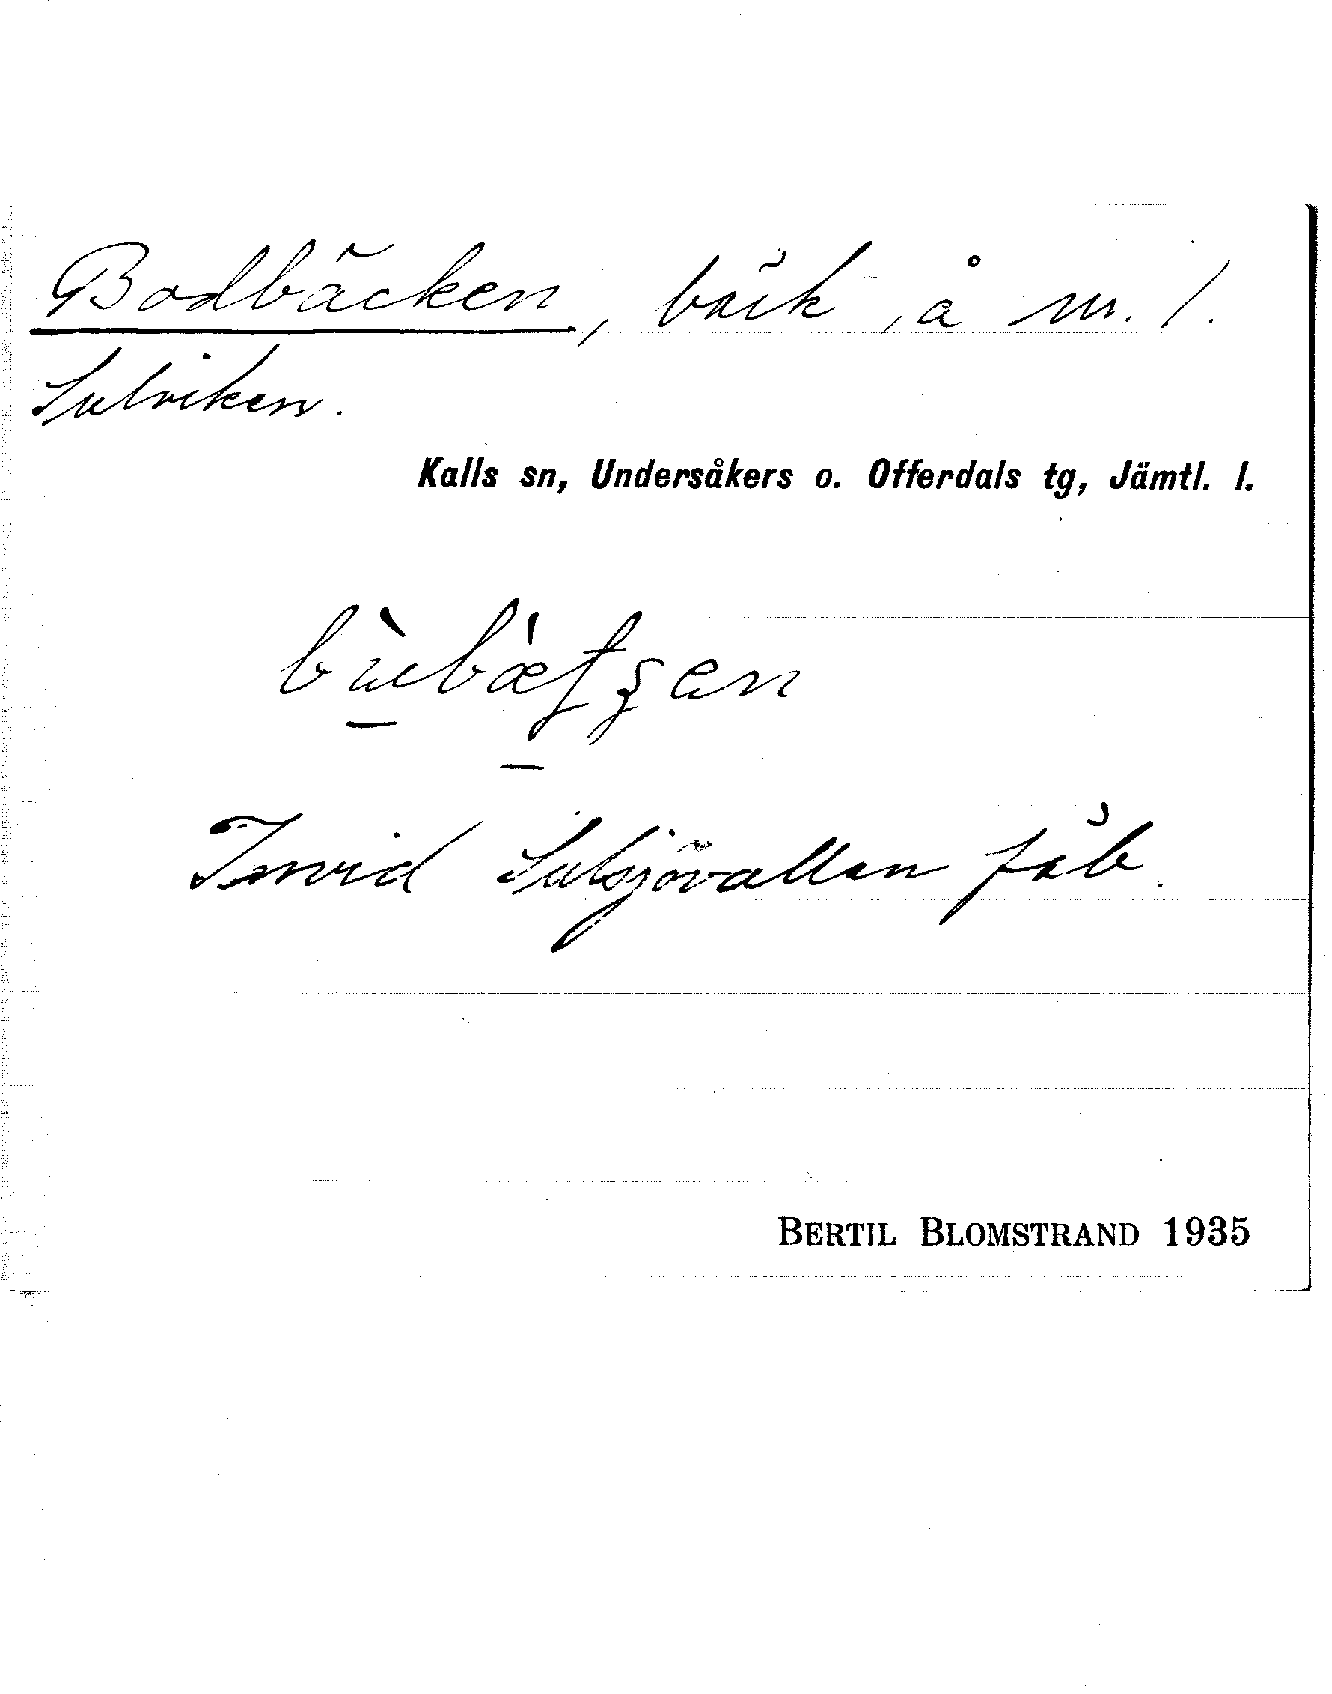 Bodbäcken, bäck, å nr. 1.
Sulviken.
Kalls sn, Undersåkers o. Offerdals tg, Jämtl. l.
Invid Sulsjövallen fäb.
BERTIL BLOMSTRAND 1935